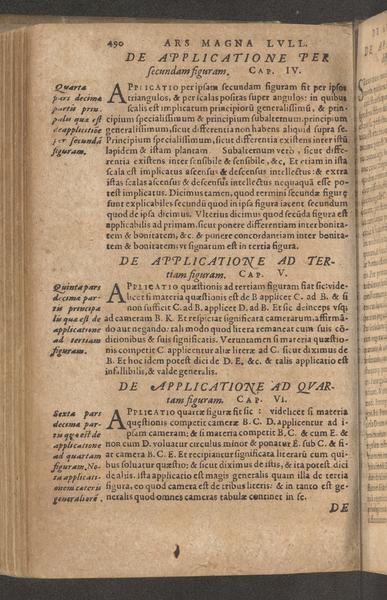 490 ARS MAGNA LVLL.
DE APPLICATIONE PER
secundam figuram. CAP. IV.
Quarta
pars decimæ
partis
est
de applicatione
per secundã
figuram.
APPLICATIO per ipsam secundam figuram fit per ipsos
triangulos, & per scalas positas super angulos: in quibus
scalis est implicatum principium generalissimũ, & prin-
cipium specialissimum & principium subalternum. principium
generalissimum, sicut differentia non habens aliquid supra se.
Principium specialissimum, sicut differentia existens inter istũ
lapidem & istam plantam. Subalternum verò, sicut diffe-
rentia existens inter sensibile & sensibile, &c. Et etiam in ista
scala est implicatus ascensus & descensus intellectus: & extra
istas scalas ascensus & descensus intellectus nequaquã esse po-
test implicatus. Dicimus tamen, quod termini secundæ figuræ
sunt explicabiles secundũ quod in ipsa figura iacent secundum
quod de ipsa dicimus. Vlterius dicimus quod secũda figura est
applicabilis ad primam. sicut ponere differentiam inter bonita-
tem & bonitatem, &c. & ponere concordantiam inter bonita-
tem & bonitatem: vt signatum est in tertia figura.
DE APPLICATIONE AD TER-
tiam figuram. CAP. V.
Quinta pars
decimæ par-
tis principa
lis quæ est de
applicatione
ad tertiam
figuram.
APPLICATIO quæstionis ad tertiam figuram fiat sic: vide-
licet si materia quæstionis est de B applicet C. ad B. & si
non sufficit C. ad B. applicet D. ad B. Et sic deinceps vsq;
ad cameram B. K. Et respiciat significata camerarum, affirmã-
do aut negando. tali modo quod litera remaneat cum suis cõ-
ditionibus & suis significatis. Veruntamen si materia quæstio-
nis competit C applicentur aliæ literæ ad C. sicut diximus de
B. Et hoc idem potest dici de D. E, &c. & talis applicatio est
infallibilis, & valde generalis.
DE APPLICATIONE AD QVAR-
tam figuram. CAP. VI.
Sexta pars
decimæ par-
tis quæ est de
applicatione
ad quartam
figuram. No-
ta applicati-
onem cæteris
generaliorẽ.
APPLICATIO quartæ figuræ fit sic: videlicet si materia
quæstionis competit cameræ B. C. D. applicentur ad i-
psam cameram; & si materia competit B, C. & cum E. &
non cum D. voluatur circulus minor & ponatur E. sub C. & fi-
at camera B. C. E. Et recipiantur significata literarũ cum qui-
bus soluatur quæstio: & sicut diximus de istis, & ita potest dici
de aliis. ista applicatio est magis generalis quàm illa de tertia
figura, eo quod camera est de tribus literis: & in tanto est ge-
neralis quod omnes cameras tabulæ continet in se.
DE